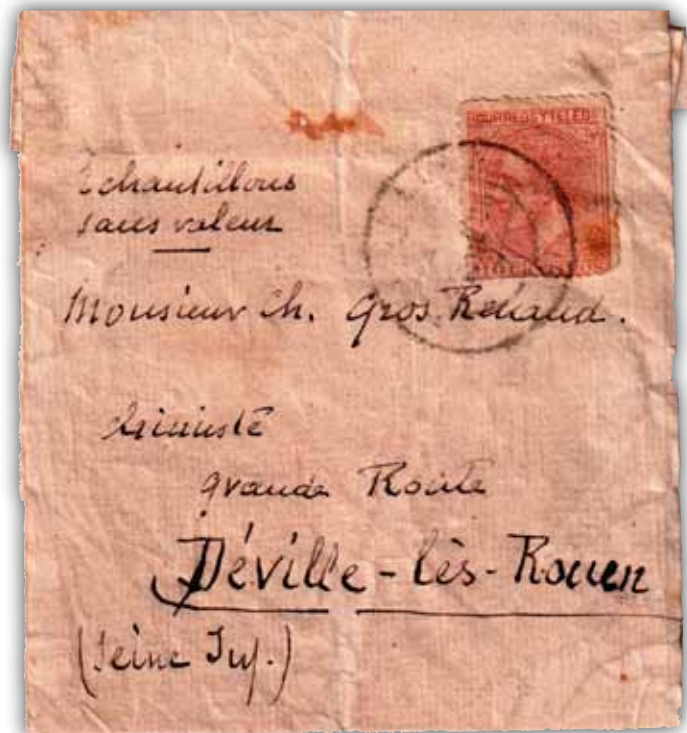 CORREOS Y TELEG
Echantillons
sans valeur
Monsieur Ch. Gros Renaud.
chimiste
grande Route
Déville-lès-Rouen
(Seine Inf.)